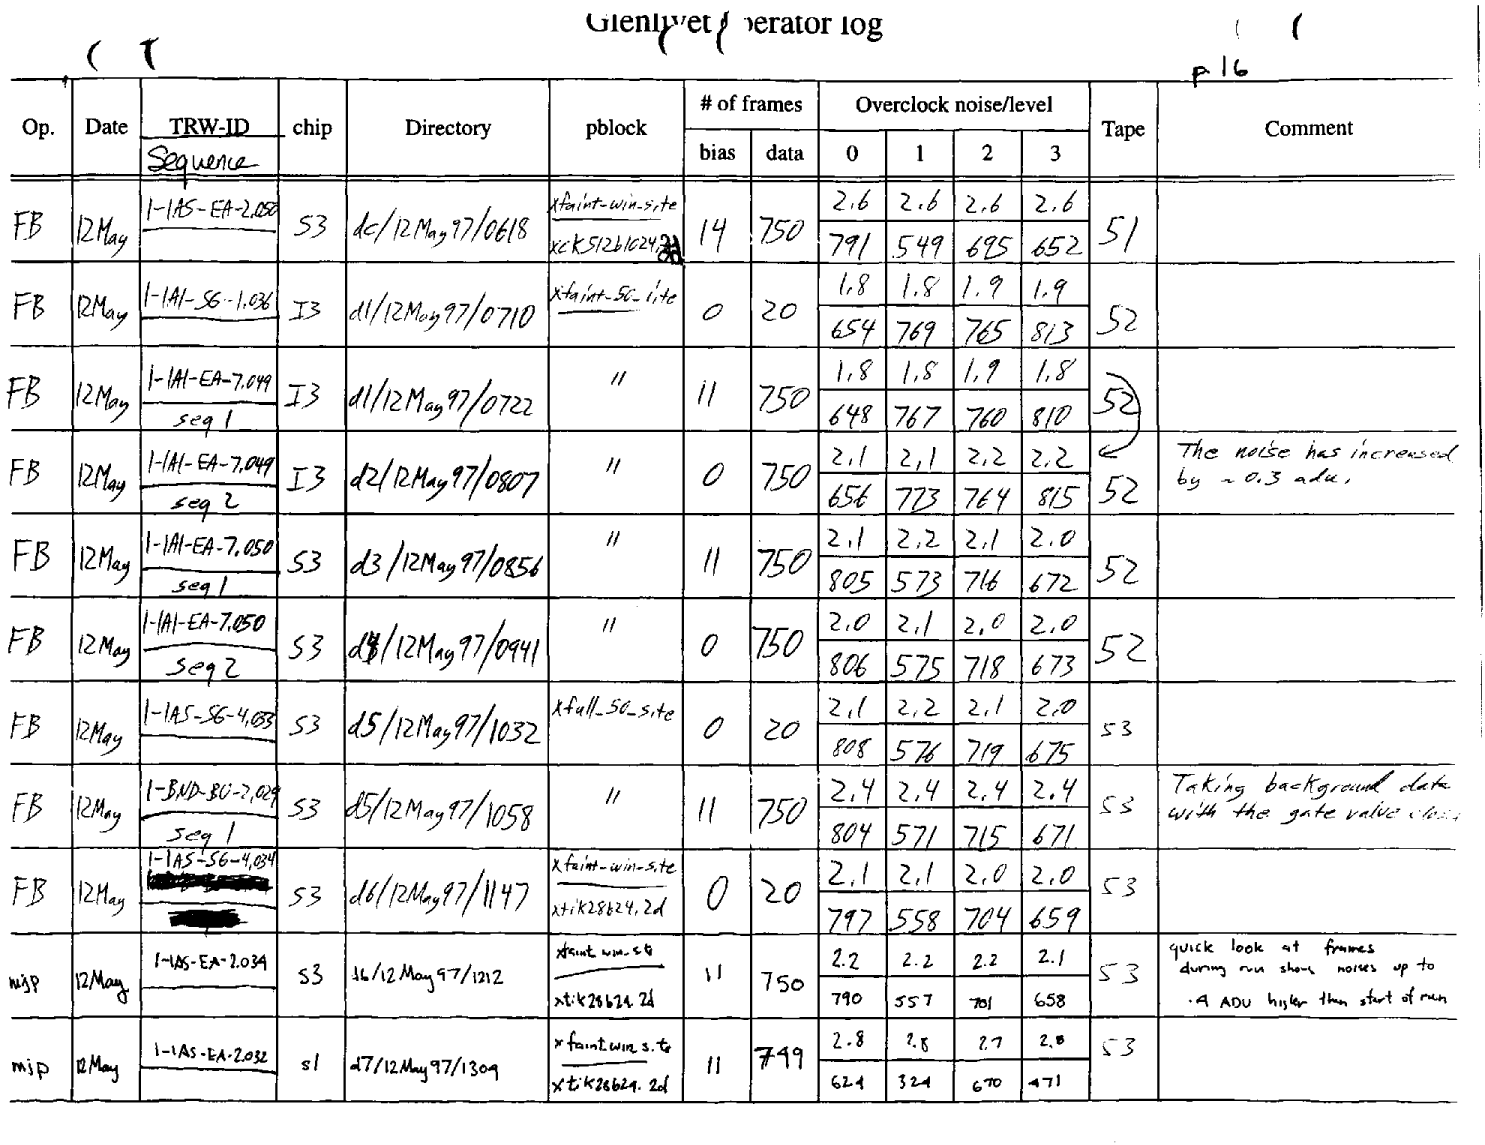 Glenlivet operator log
p 16
Op. Date TRW-ID chip Directory pblock # of frames Overclock noise/level Tape Comment
Sequence bias data 0 1 2 3
FB 12May 1-IAS-EA-2.050 S3 dc/12May97/0618 xfaint-win-site 14 750 2.6 2.6 2.6 2.6 51
791 549 695 652
FB 12May 1-IAI-SG-1.036 I3 d1/12May97/0710 0 20 1.8 1.8 1.9 1.9 52
654 769 765 813
FB 12May 1-IAI-EA-7.049 I3 d1/12May97/0722 " 11 750 1.8 1.8 1.9 1.8 52
seq 1 648 767 760 810
FB 12May 1-IAI-EA-7.049 I3 d2/12May97/0807 " 0 750 2.1 2.1 2.2 2.2 52 The noise has increased
seq 2 656 773 764 815 by ~ 0.3 adu.
FB 12May 1-IAI-EA-7.050 S3 d3/12May97/0856 " 11 750 2.1 2.2 2.1 2.0 52
seq 1 805 573 716 672
FB 12May 1-IAI-EA-7.050 S3 /12May97/0941 " 0 750 2.0 2.1 2.0 2.0 52
seq 2 806 575 718 673
FB 12May 1-IAS-SG-4.033 S3 d5/12May97/1032 xfull_50_site 0 20 2.1 2.2 2.1 2.0 53
808 576 719 675
FB 12May 1-BND-BU-2.029 S3 d5/12May97/1058 " 11 750 2.4 2.4 2.4 2.4 53 Taking background data
seq 1 804 571 715 671 with the gate valve
FB 12May 1-IAS-SG-4.034 S3 d6/12May97/1147 xfaint-win-site 0 20 2.1 2.1 2.0 2.0 53
xtik28624.2d 797 558 704 659
mjp 12May 1-IAS-EA-2.034 S3 d6/12May97/1212 xfaint win site 11 750 2.2 2.2 2.2 2.1 53 quick look at frames
during run shows noises up to
xtik28624.2d 790 557 701 658 .4 ADU higher than start of run
mjp 12May 1-IAS-EA-2.032 S1 d7/12May97/1309 xfaint win site 11 749 2.8 2.8 2.7 2.8 53
xtik28624.2d 624 324 670 471